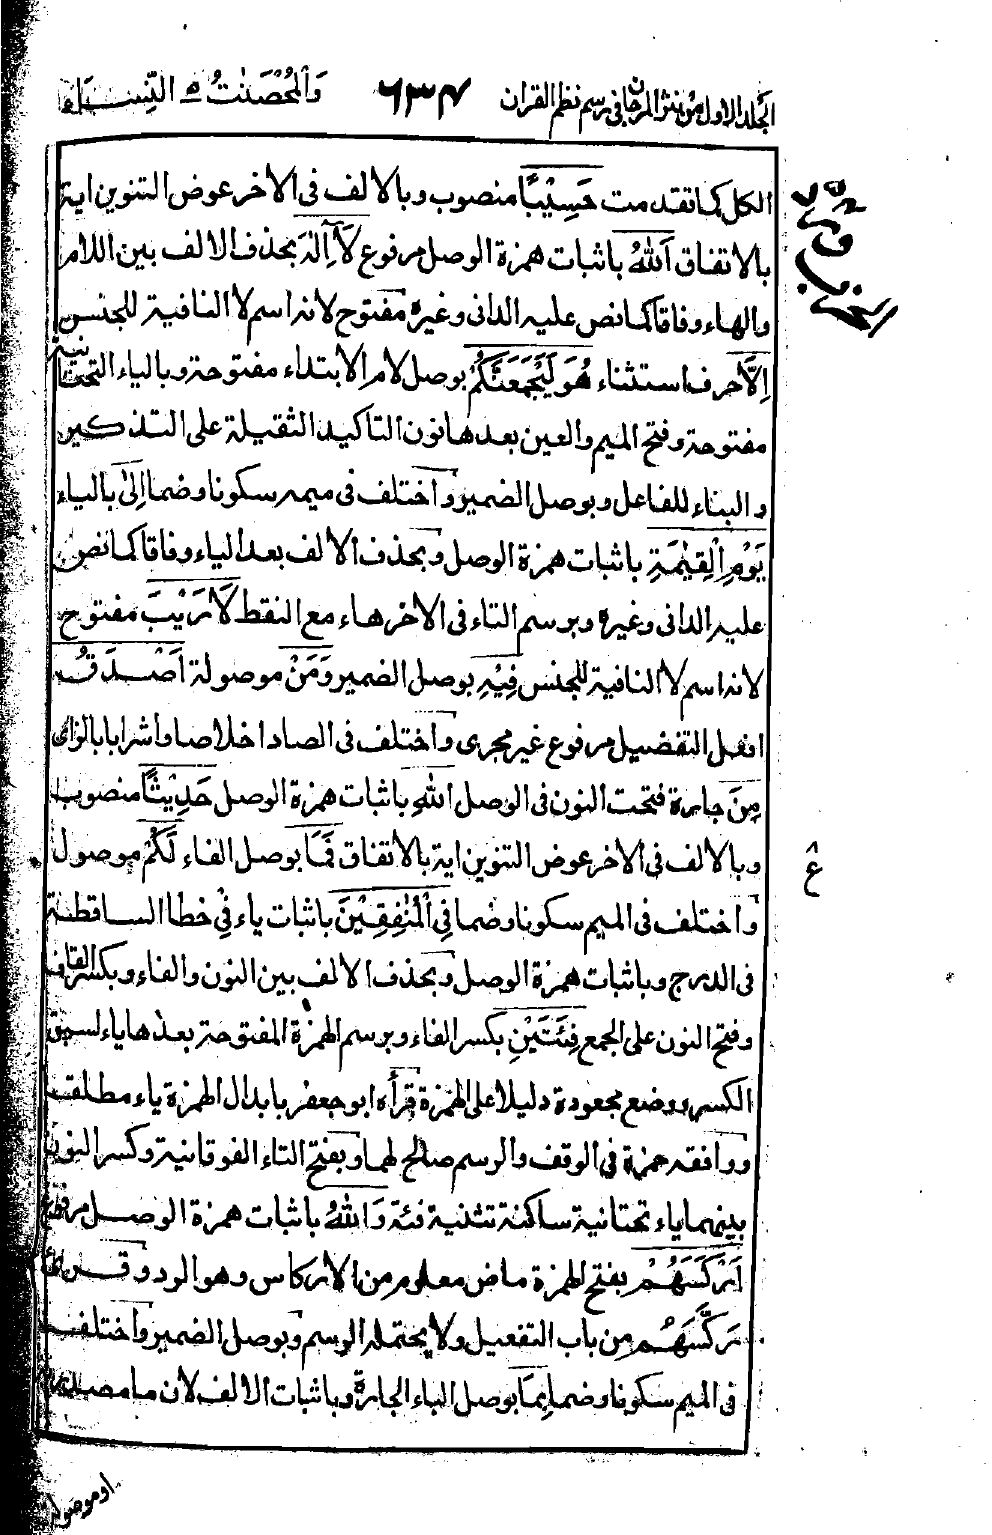 الجلد الاول من نثر المرجان في رسم نظم القران ٦٣٧ والمحصنت ٥ النساء
الكل كما تقدمت حَسِيْبًا منصوب وبالالف فى الاخر عوض التنوين اية
بالاتفاق اَللهُ باثبات همزة الوصل مرفوع لَآ اِلٰهَ بحذف الالف بين اللام
والهاء وفاقا كما نص عليه الدانى وغيره مفتوح لانه اسم لا النافية للجنس
اِلَّا حرف استثناء هُوَ لَيَجْمَعَنَّكُمْ بوصل لام الابتداء مفتوحة وبالياء التحتانية
مفتوحة وفتح الميم والعين بعدها نون التاكيد الثقيلة على التذكير
والبناء للفاعل وبوصل الضمير واختلف فى ميمه سكونا وضما اِلٰى بالياء
يَوْمِ الْقِيٰمَةِ باثبات همزة الوصل وبحذف الالف بعد الياء وفاقا كما نص
عليه الدانى وغيره وبرسم التاء فى الاخر هاء مع النقط لَا رَيْبَ مفتوح
لانه اسم لا النافية للجنس فِيْهِ بوصل الضمير وَمَنْ موصولة اَصْدَقُ
افعل التفضيل مرفوع غير مجرى واختلف فى الصاد اخلاصا واشرابا بالزاى
مِنَ جارة فتحت النون فى الوصل اللهِ باثبات همزة الوصل حَدِيْثًا منصوب
وبالالف فى الاخر عوض التنوين اية بالاتفاق فَمَا بوصل الفاء لَكُمْ موصول
واختلف فى الميم سكونا وضما فِى الْمُنٰفِقِيْنَ باثبات ياء فِىْ خطا الساقطة
فى الدرج وباثبات همزة الوصل وبحذف الالف بين النون والفاء وبكسر القاف
وفتح النون على الجمع فِئَتَيْنِ بكسر الفاء وبرسم الهمزة المفتوحة بعدها ياء لسبق
الكسر ووضع مجعودة دليلا على الهمزة قرأه ابو جعفر بابدال الهمزة ياء مطلقا
ووافقه حمزة فى الوقف والرسم صالح لهما وبفتح التاء الفوقانية وكسر النون
بينهما ياء تحتانية ساكنة تثنية فئة وَاللهُ باثبات همزة الوصل مرفوع
اَرْكَسَهُمْ بفتح الهمزة ماض معلوم من الاركاس وهو الرد وقرئ
رَكَّسَهُمْ من باب التفعيل ولا يحتمله الرسم وبوصل الضمير واختلف
فى الميم سكونا وضما بِمَا بوصل الباء الجارة وباثبات الالف لان ما مصدرية
ع
او موصولة